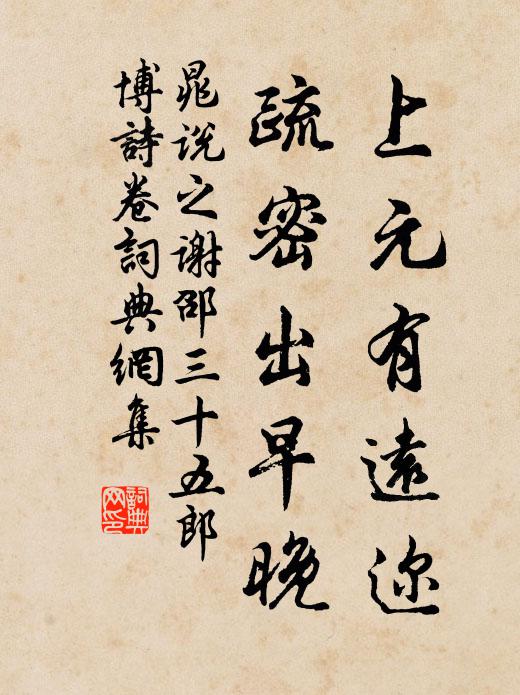 上元有遠迩
疏密出早晚
晁説之謝邵三十五郎
博詩卷詞典網集
詞典
网印